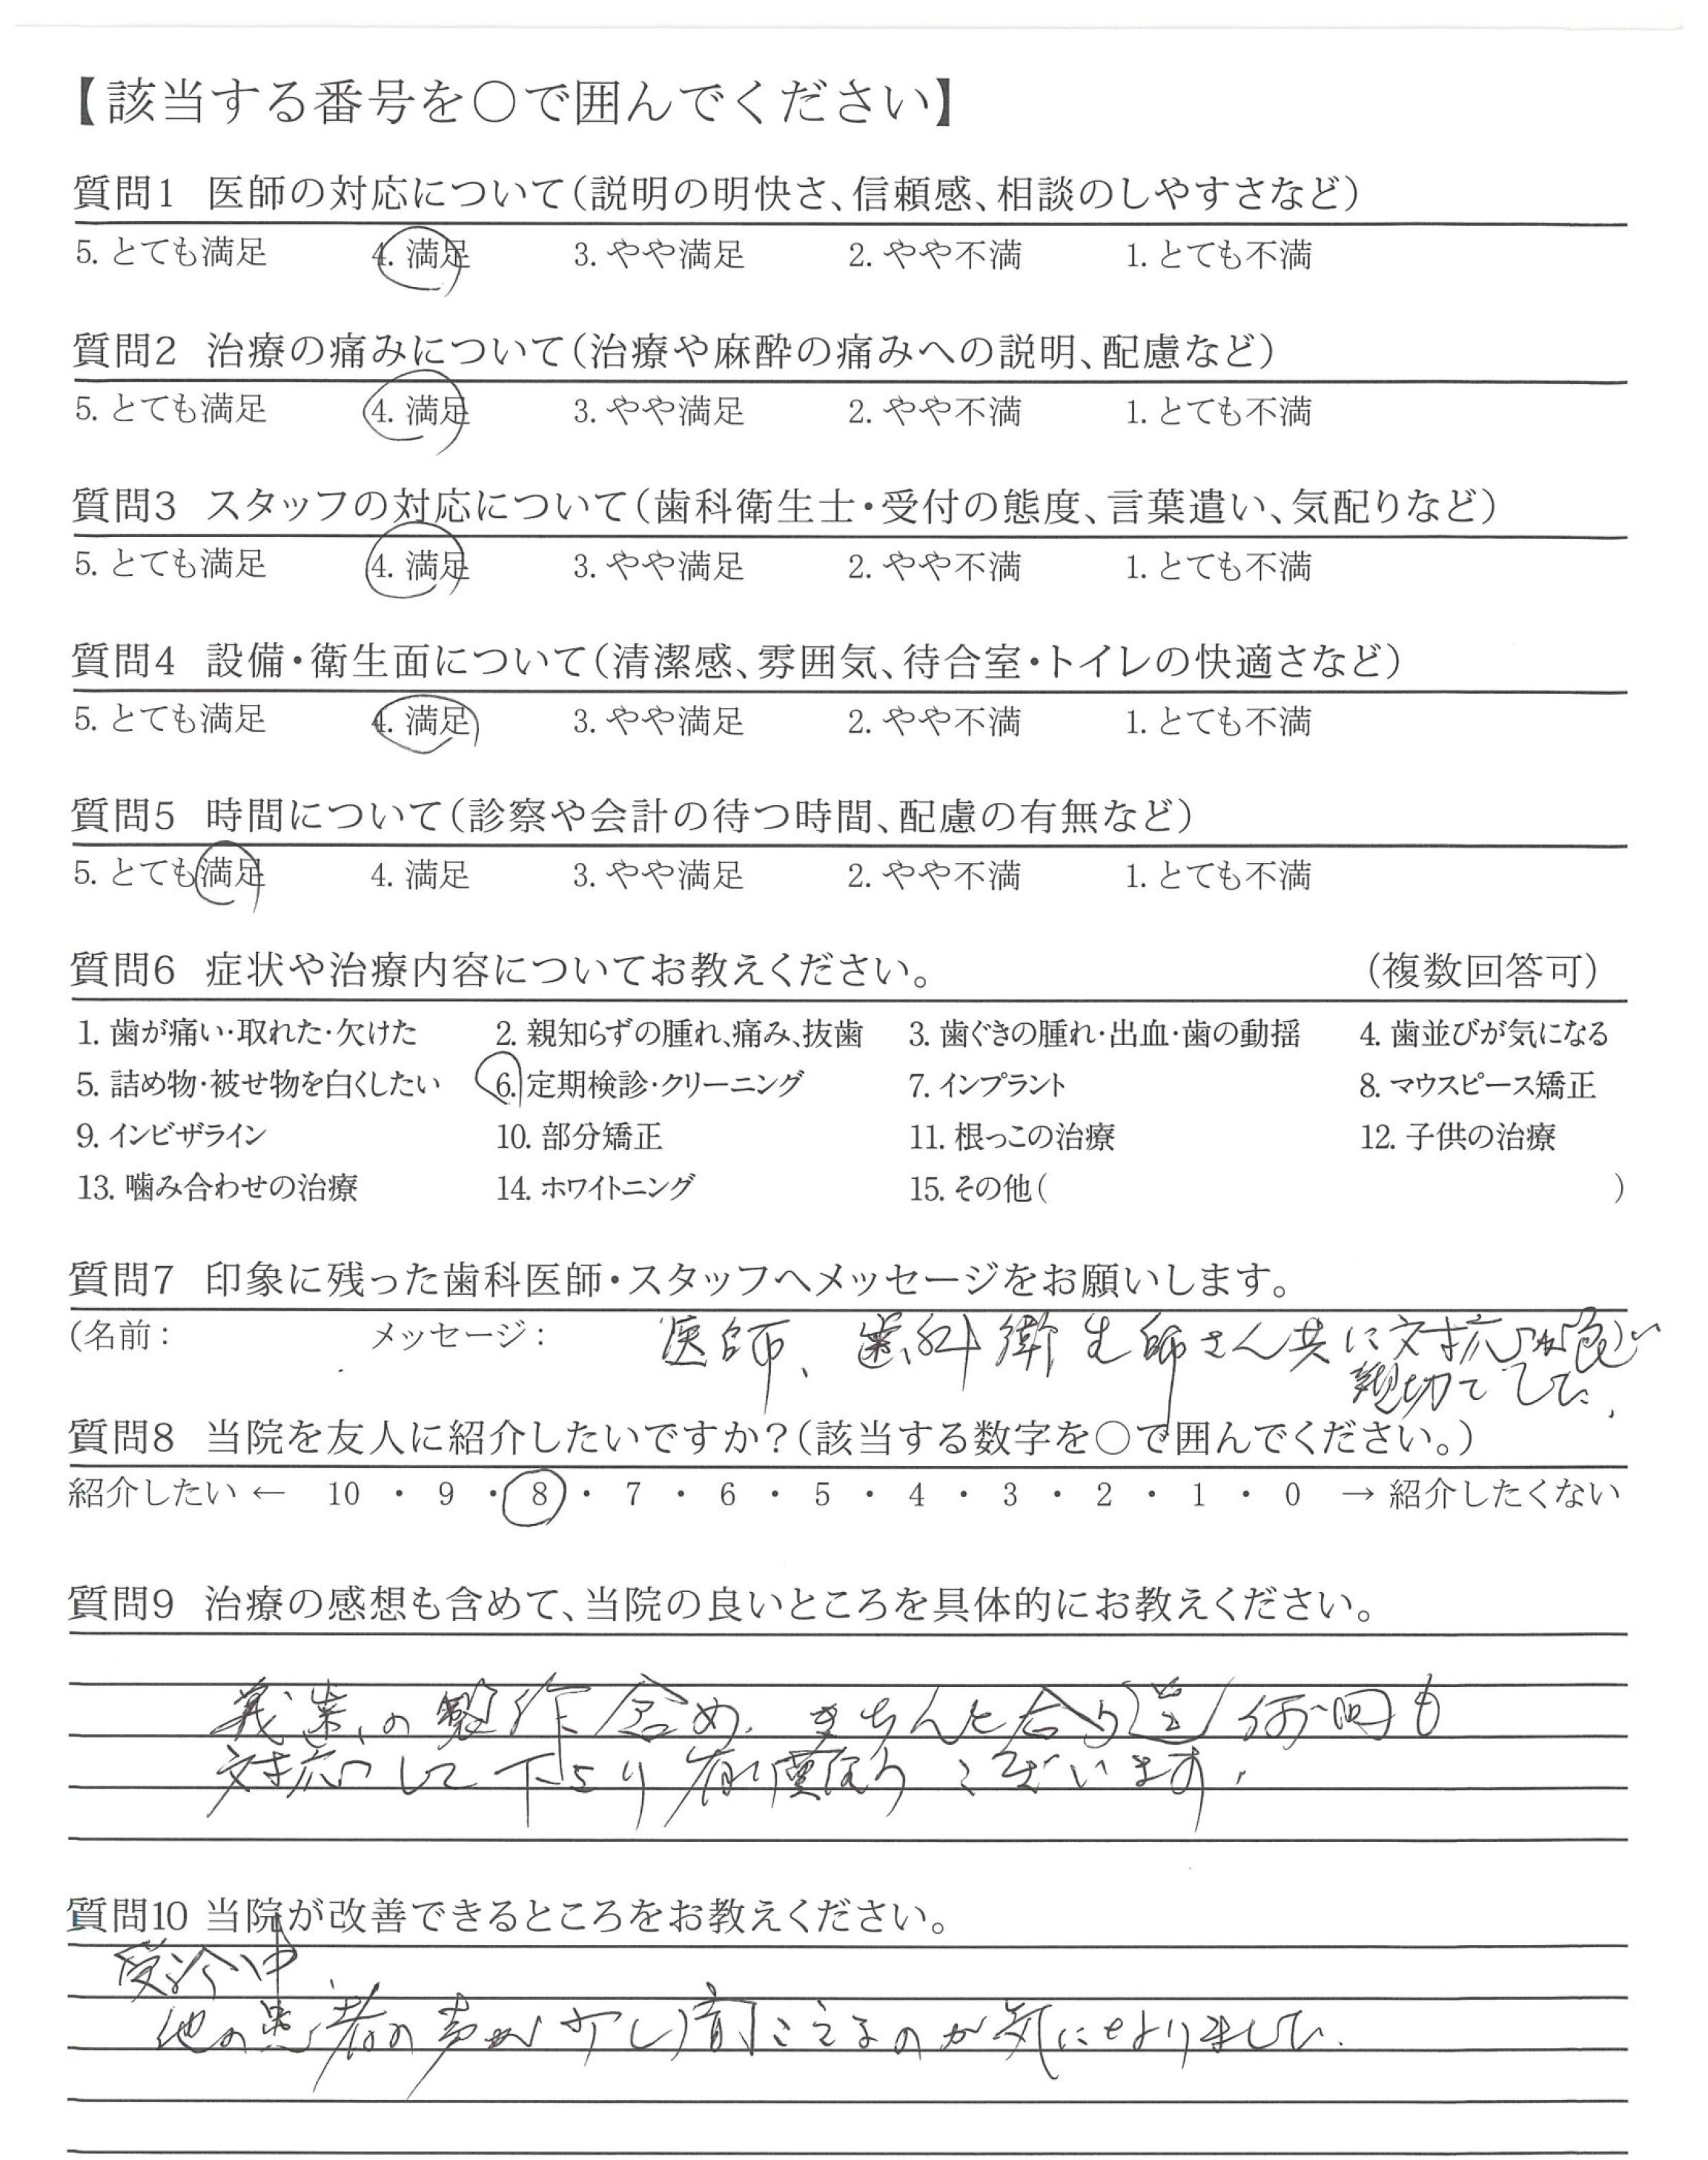 【該当する番号を○で囲んでください】
質問1 医師の対応について(説明の明快さ、信頼感、相談のしやすさなど)
5. とても満足 4. 満足 3. やや満足 2. やや不満 1. とても不満
質問2 治療の痛みについて(治療や麻酔の痛みへの説明、配慮など)
5. とても満足 4. 満足 3. やや満足 2. やや不満 1. とても不満
質問3 スタッフの対応について(歯科衛生士・受付の態度、言葉遣い、気配りなど)
5. とても満足 4. 満足 3. やや満足 2. やや不満 1. とても不満
質問4 設備・衛生面について(清潔感、雰囲気、待合室・トイレの快適さなど)
5. とても満足 4. 満足 3. やや満足 2. やや不満 1. とても不満
質問5 時間について(診察や会計の待つ時間、配慮の有無など)
5. とても満足 4. 満足 3. やや満足 2. やや不満 1. とても不満
質問6 症状や治療内容についてお教えください。 (複数回答可)
1. 歯が痛い・取れた・欠けた 2. 親知らずの腫れ、痛み、抜歯 3. 歯ぐきの腫れ・出血・歯の動揺 4. 歯並びが気になる
5. 詰め物・被せ物を白くしたい 6. 定期検診・クリーニング 7. インプラント 8. マウスピース矯正
9. インビザライン 10. 部分矯正 11. 根っこの治療 12. 子供の治療
13. 噛み合わせの治療 14. ホワイトニング 15. その他( )
質問7 印象に残った歯科医師・スタッフへメッセージをお願いします。
(名前: メッセージ: 医師、歯科衛生師さん共に対応が良い
親切でした.
質問8 当院を友人に紹介したいですか?(該当する数字を○で囲んでください。)
紹介したい ← 10 ・ 9 ・ 8 ・ 7 ・ 6 ・ 5 ・ 4 ・ 3 ・ 2 ・ 1 ・ 0 → 紹介したくない
質問9 治療の感想も含めて、当院の良いところを具体的にお教えください。
義歯の製作含め、きちんと合う迄何回も
対応して下さり有り難うございます.
質問10 当院が改善できるところをお教えください。
受診中
他の患者の声が少し聞こえるのが気になりました.